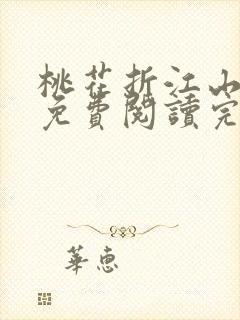 桃花折江山
免費閱讀完
華惠